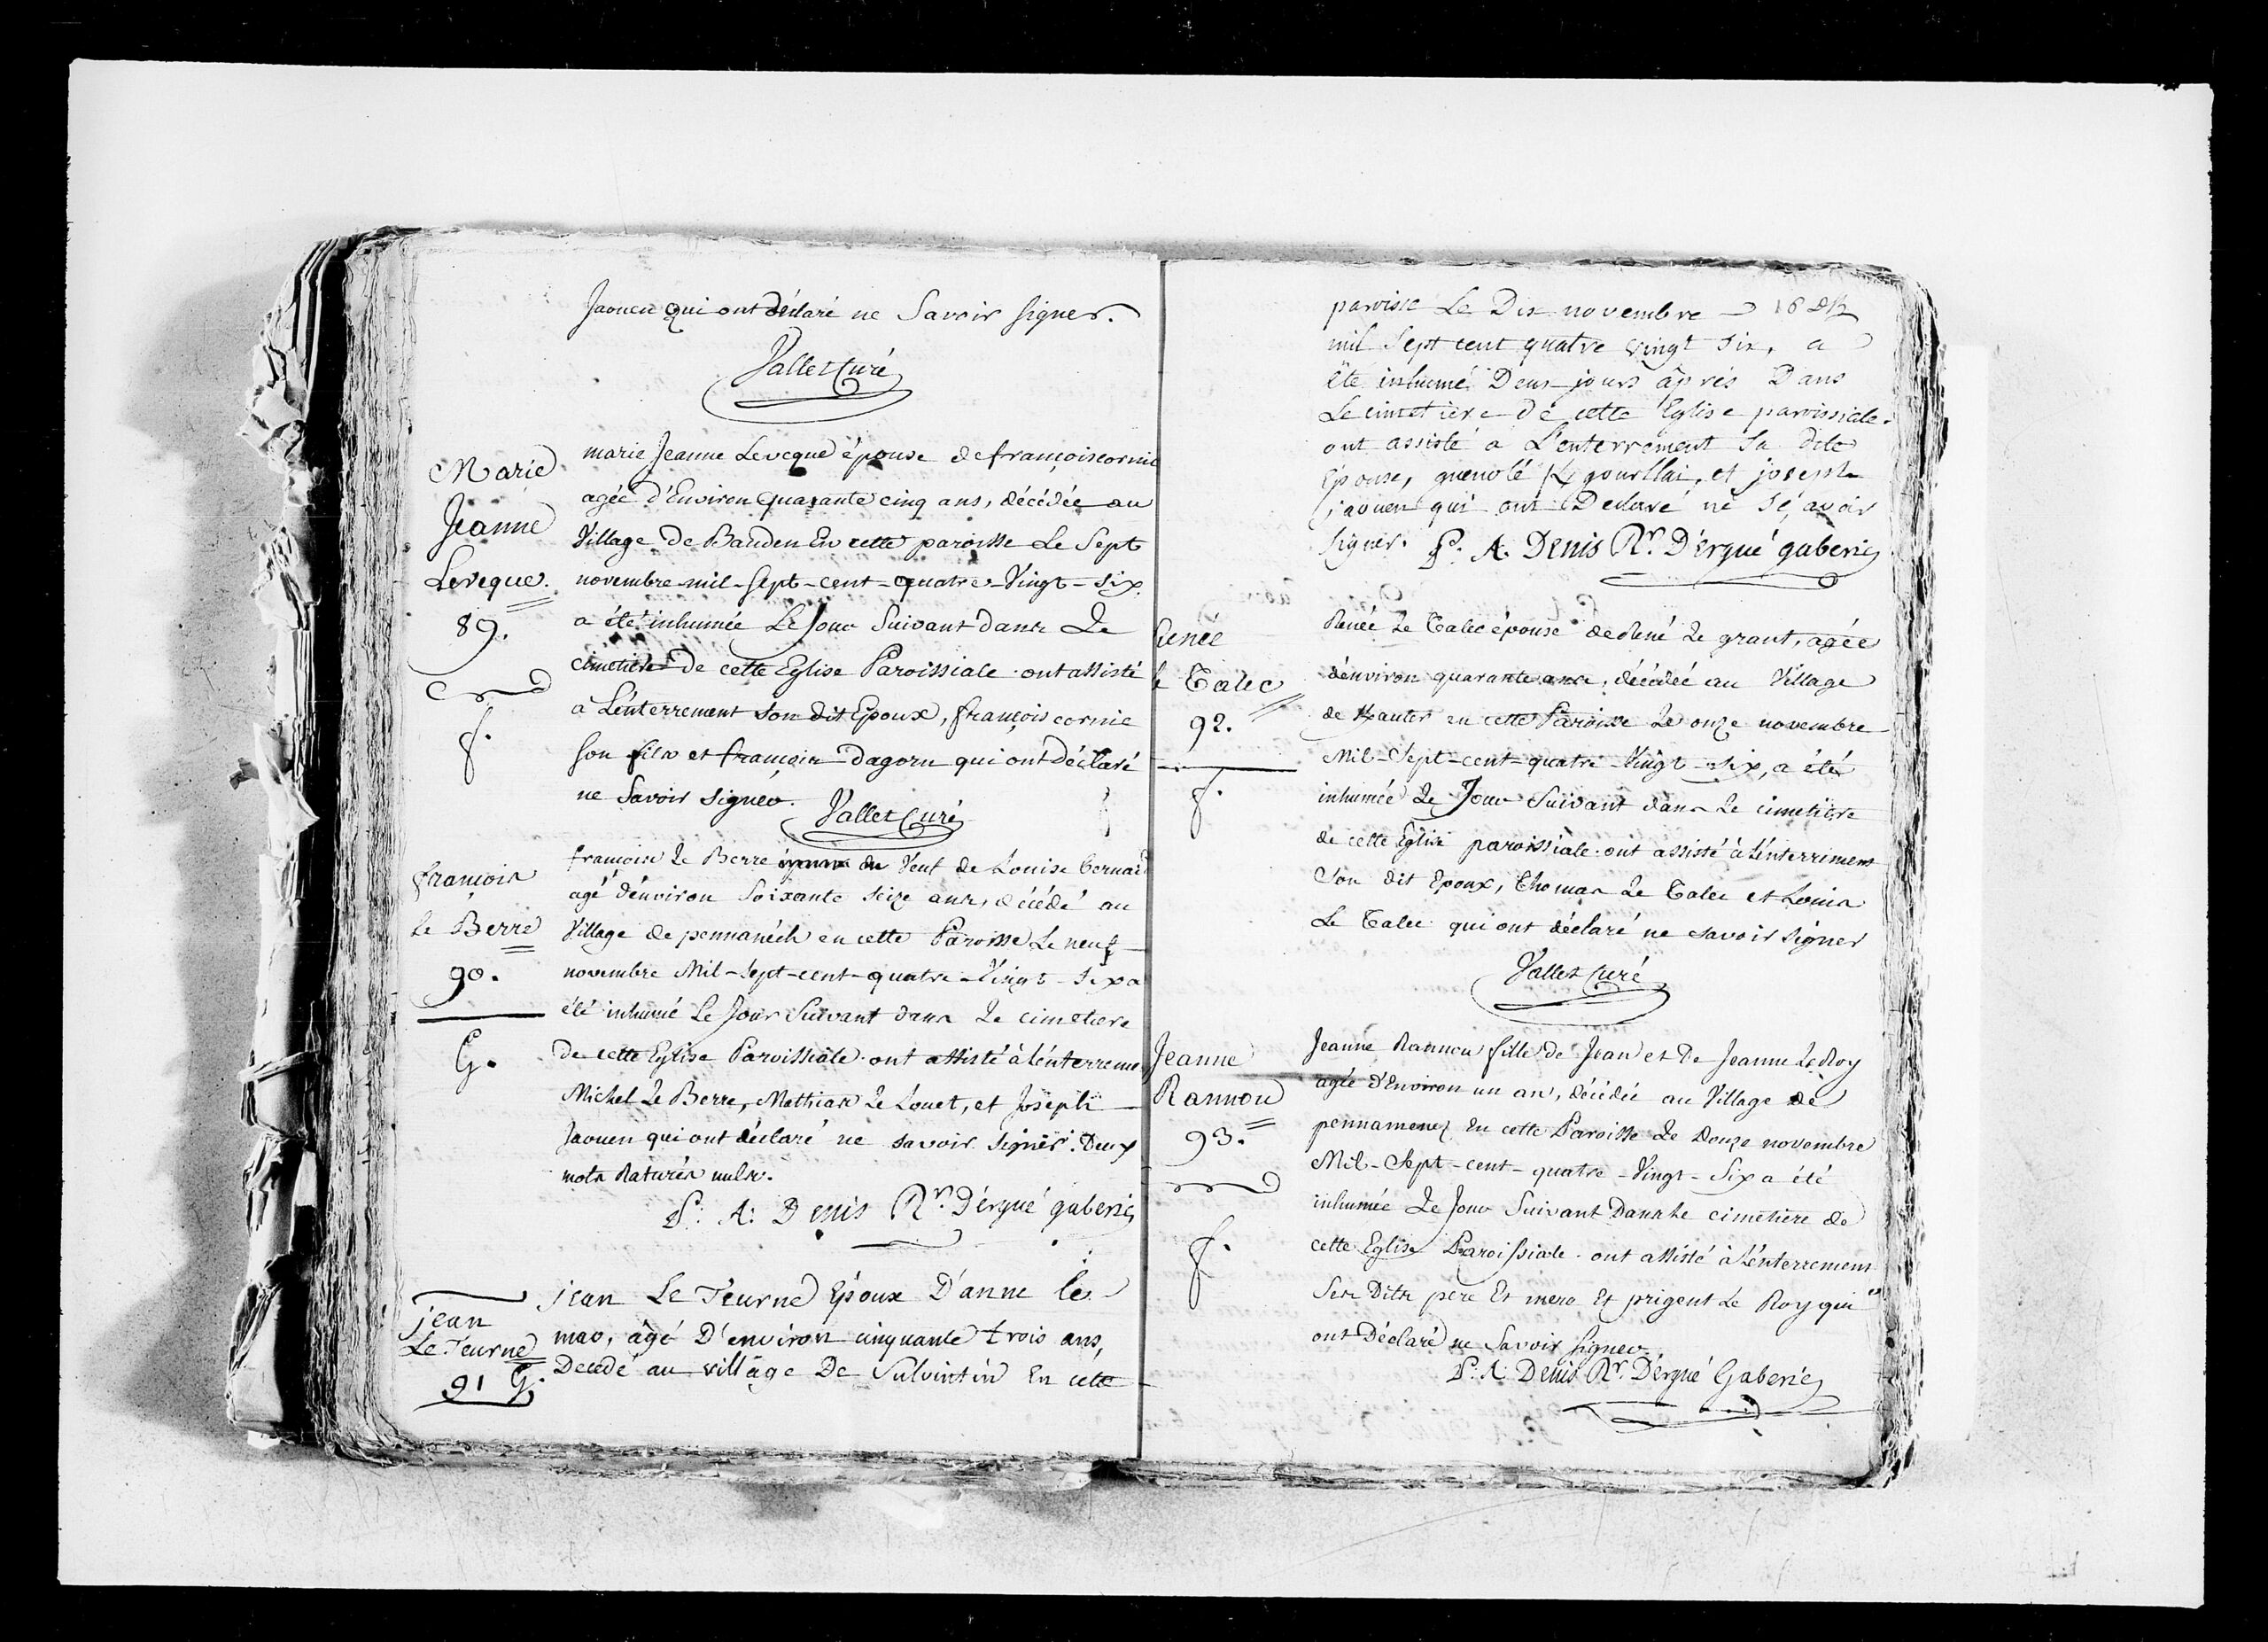 Jaouen qui ont déclaré ne Savoir signer.
Vallet Curé
Marie
Jeanne
Leveque.
89.
f.
marie Jeanne Leveque épouse de françois cornic
agée d'Environ quarante cinq ans, décédée au
Village de Bauden En cette paroisse Le Sept
novembre mil-Sept-cent-quatre-Vingt-six
a été inhumée Le Jour Suivant dans Le
cimetiere de cette Eglise Paroissiale. ont assisté
a L'enterrement son dit Epoux, françois cornic
son fils et françois Dagorn qui ont déclaré
ne Savoir signer. Vallet Curé
françois
le Berre
90.
G.
françois Le Berre époux de Veuf de Louise bernard
agé d'environ Soixante seize ans, décédé au
Village de pennanéch en cette Paroisse Le neuf
novembre Mil-Sept-cent-quatre-Vingt-Six a
été inhumé Le Jour Suivant dans Le cimetiere
de cette Eglise Paroissiale. ont assisté à L'enterrement
Michel Le Berre, Mathias Le Louet, et Joseph
Jaouen qui ont déclaré ne savoir signer. Deux
mots Raturés nuls.
P. A: Denis Rr. D'ergué gaberic
jean
Le Teurne
91 G.
jean Le Teurne Epoux D'anne le
mao, âgé D'environ cinquante trois ans,
Decedé au village De Sulvintin En cette
paroisse Le Dix novembre
mil Sept cent quatre vingt six, a
été inhumé Deux jours âprés Dans
Le cimetiere de cette Eglise paroissiale.
ont assisté a L'enterrement Sa dite
Epouse, guenolé Kgourllai, et joseph
jaouen qui ont Declaré ne Sçavoir
signer. P. A. Denis Rr. D'ergué gaberic
Renée
le Talec
92.
f.
Renée Le Talec épouse de René Le grant, agée
d'environ quarante ans, décédée au Village
de Kautes en cette Paroisse Le onze novembre
Mil-Sept-cent-quatre-Vingt-six, a été
inhumée Le Jour Suivant dans Le cimetiere
de cette Eglise paroissiale. ont assisté à L'enterrement
Son dit Epoux, Thomas Le Talec et Louis
Le Talec qui ont déclaré ne savoir signer
Vallet Curé
Jeanne
Rannou
93.
f.
Jeanne Rannou fille de Jean et De Jeanne Le Roy
agée d'Environ un an, décédée au Village de
pennamenez En cette Paroisse Le Douze novembre
Mil-Sept-cent-quatre-Vingt-Six a été
inhumée Le Jour Suivant Dans Le cimetiere de
cette Eglise Paroissiale. ont assisté à L'enterrement
Ses Dits pere Et mere Et prigent Le Roy qui
ont Déclaré ne Savoir signer.
P. A. Denis Rr. D'ergué Gaberic